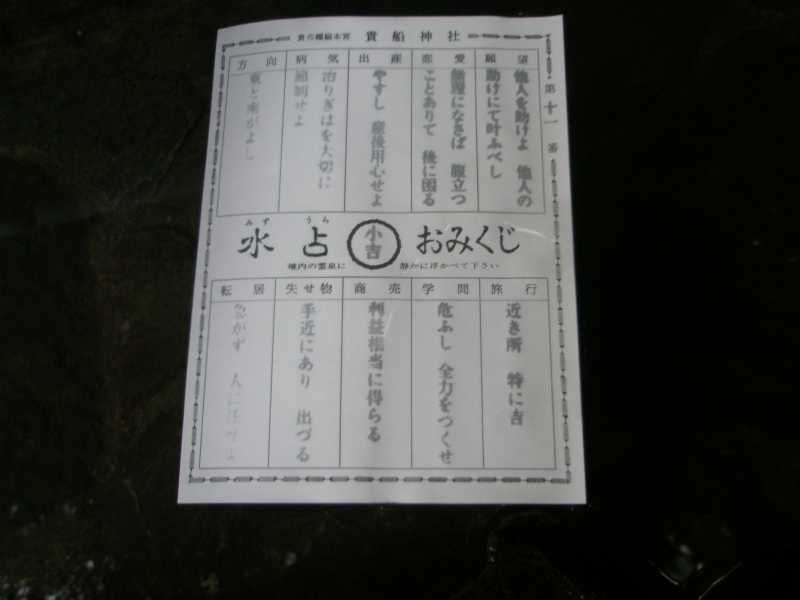 貴船神社
第十一番
願望
他人を助けよ 他人の
助けにて叶ふべし
恋愛
無理になさば 腹立つ
ことありて 後に困る
出産
やすし 産後用心せよ
病気
治りぎはを大切に
節制せよ
方向
東と南がよし
みず うら
水占 小吉 おみくじ
境内の霊泉に 静かに浮かべて下さい
旅行
近き所 特に吉
学問
危ふし 全力をつくせ
商売
利益相当に得らる
失せ物
手近にあり 出づる
転居
急がず 人に任せよ